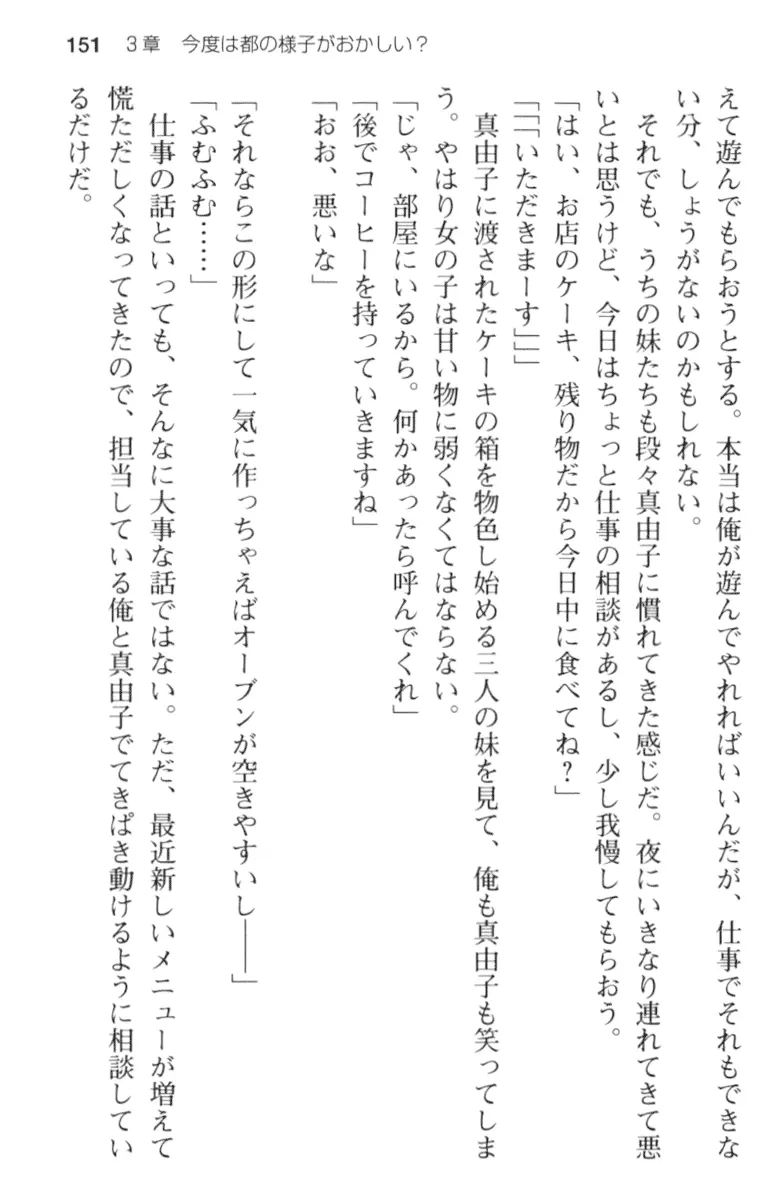 151　3章　今度は都の様子がおかしい？
えて遊んでもらおうとする。本当は俺が遊んでやれればいいんだが、仕事でそれもできな
い分、しょうがないのかもしれない。
　それでも、うちの妹たちも段々真由子に慣れてきた感じだ。夜にいきなり連れてきて悪
いとは思うけど、今日はちょっと仕事の相談があるし、少し我慢してもらおう。
「はい、お店のケーキ、残り物だから今日中に食べてね？」
「「「いただきまーす」」」
　真由子に渡されたケーキの箱を物色し始める三人の妹を見て、俺も真由子も笑ってしま
う。やはり女の子は甘い物に弱くなくてはならない。
「じゃ、部屋にいるから。何かあったら呼んでくれ」
「後でコーヒーを持っていきますね」
「おお、悪いな」
「それならこの形にして一気に作っちゃえばオーブンが空きやすいし――」
「ふむふむ……」
　仕事の話といっても、そんなに大事な話ではない。ただ、最近新しいメニューが増えて
慌ただしくなってきたので、担当している俺と真由子でてきぱき動けるように相談してい
るだけだ。